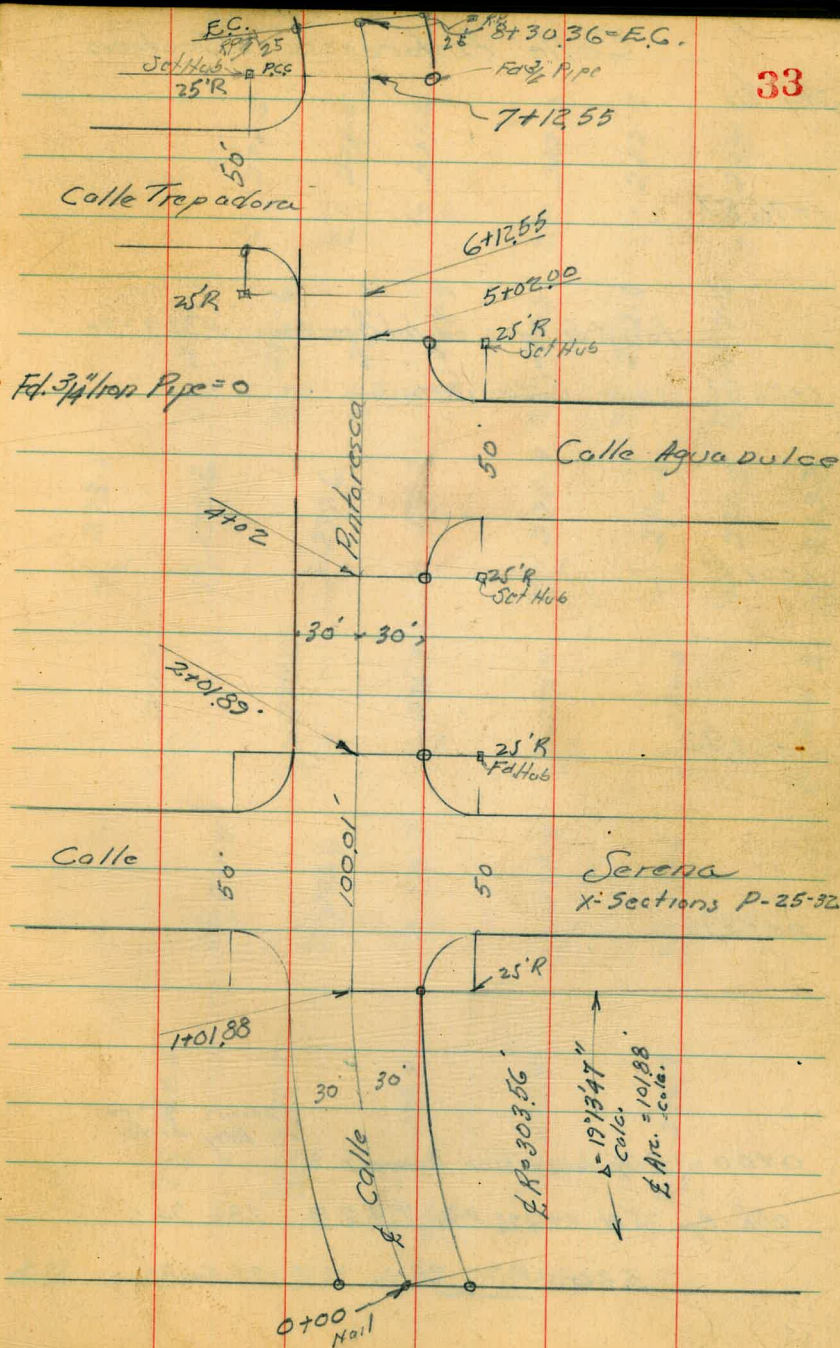 33
E.C.
25
8+30.36=E.C.
25
Set Hub
P.C.C.
25'R
Fd. 3/4 Pipe
7+12.55
50'
Calle Trepadora
6+12.55
5+02.00
25'R
25'R
Set Hub
Fd. 3/4" Iron Pipe = o
Pintoresca
50'
Calle Agua Dulce
4+02
25'R
Set Hub
30' 30'
2+01.89
25'R
Fd. Hub
100.01'
Calle
50'
50
Serena
X-Sections P-25-32
25'R
1+01.88
30' 30'
℄ Calle
℄ R=303.56'
Δ=19°13'47"
Calc.
℄ Arc. = 101.88'
calc.
0+00
Nail